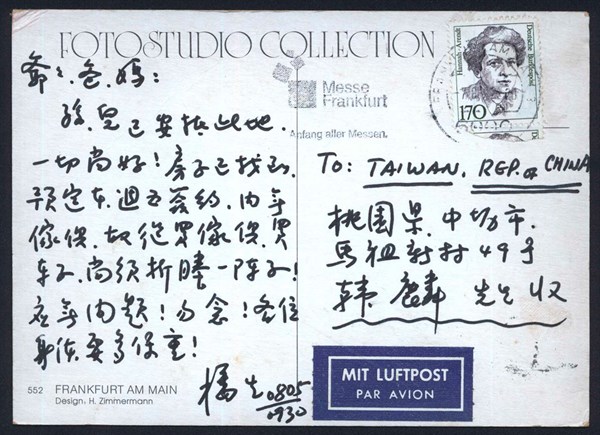 FOTOSTUDIO COLLECTION
爺々、爸、媽：
孩兒已安抵此地
一切尚好！房子已找到，
預定本週五簽約，內無
傢俱，故從買傢俱、買
車子，尚須折騰一陣子！
應無問題！勿念！各位
身体要多保重！
0805
0930
552 FRANKFURT AM MAIN
Design. H. Zimmermann
Messe
Frankfurt
Anfang aller Messen.
Hannah Arendt
Deutsche Bundespost
170
To: TAIWAN, REP. of CHINA
桃園県中坜市
馬祖新村49号
韩麟先生收
MIT LUFTPOST
PAR AVION